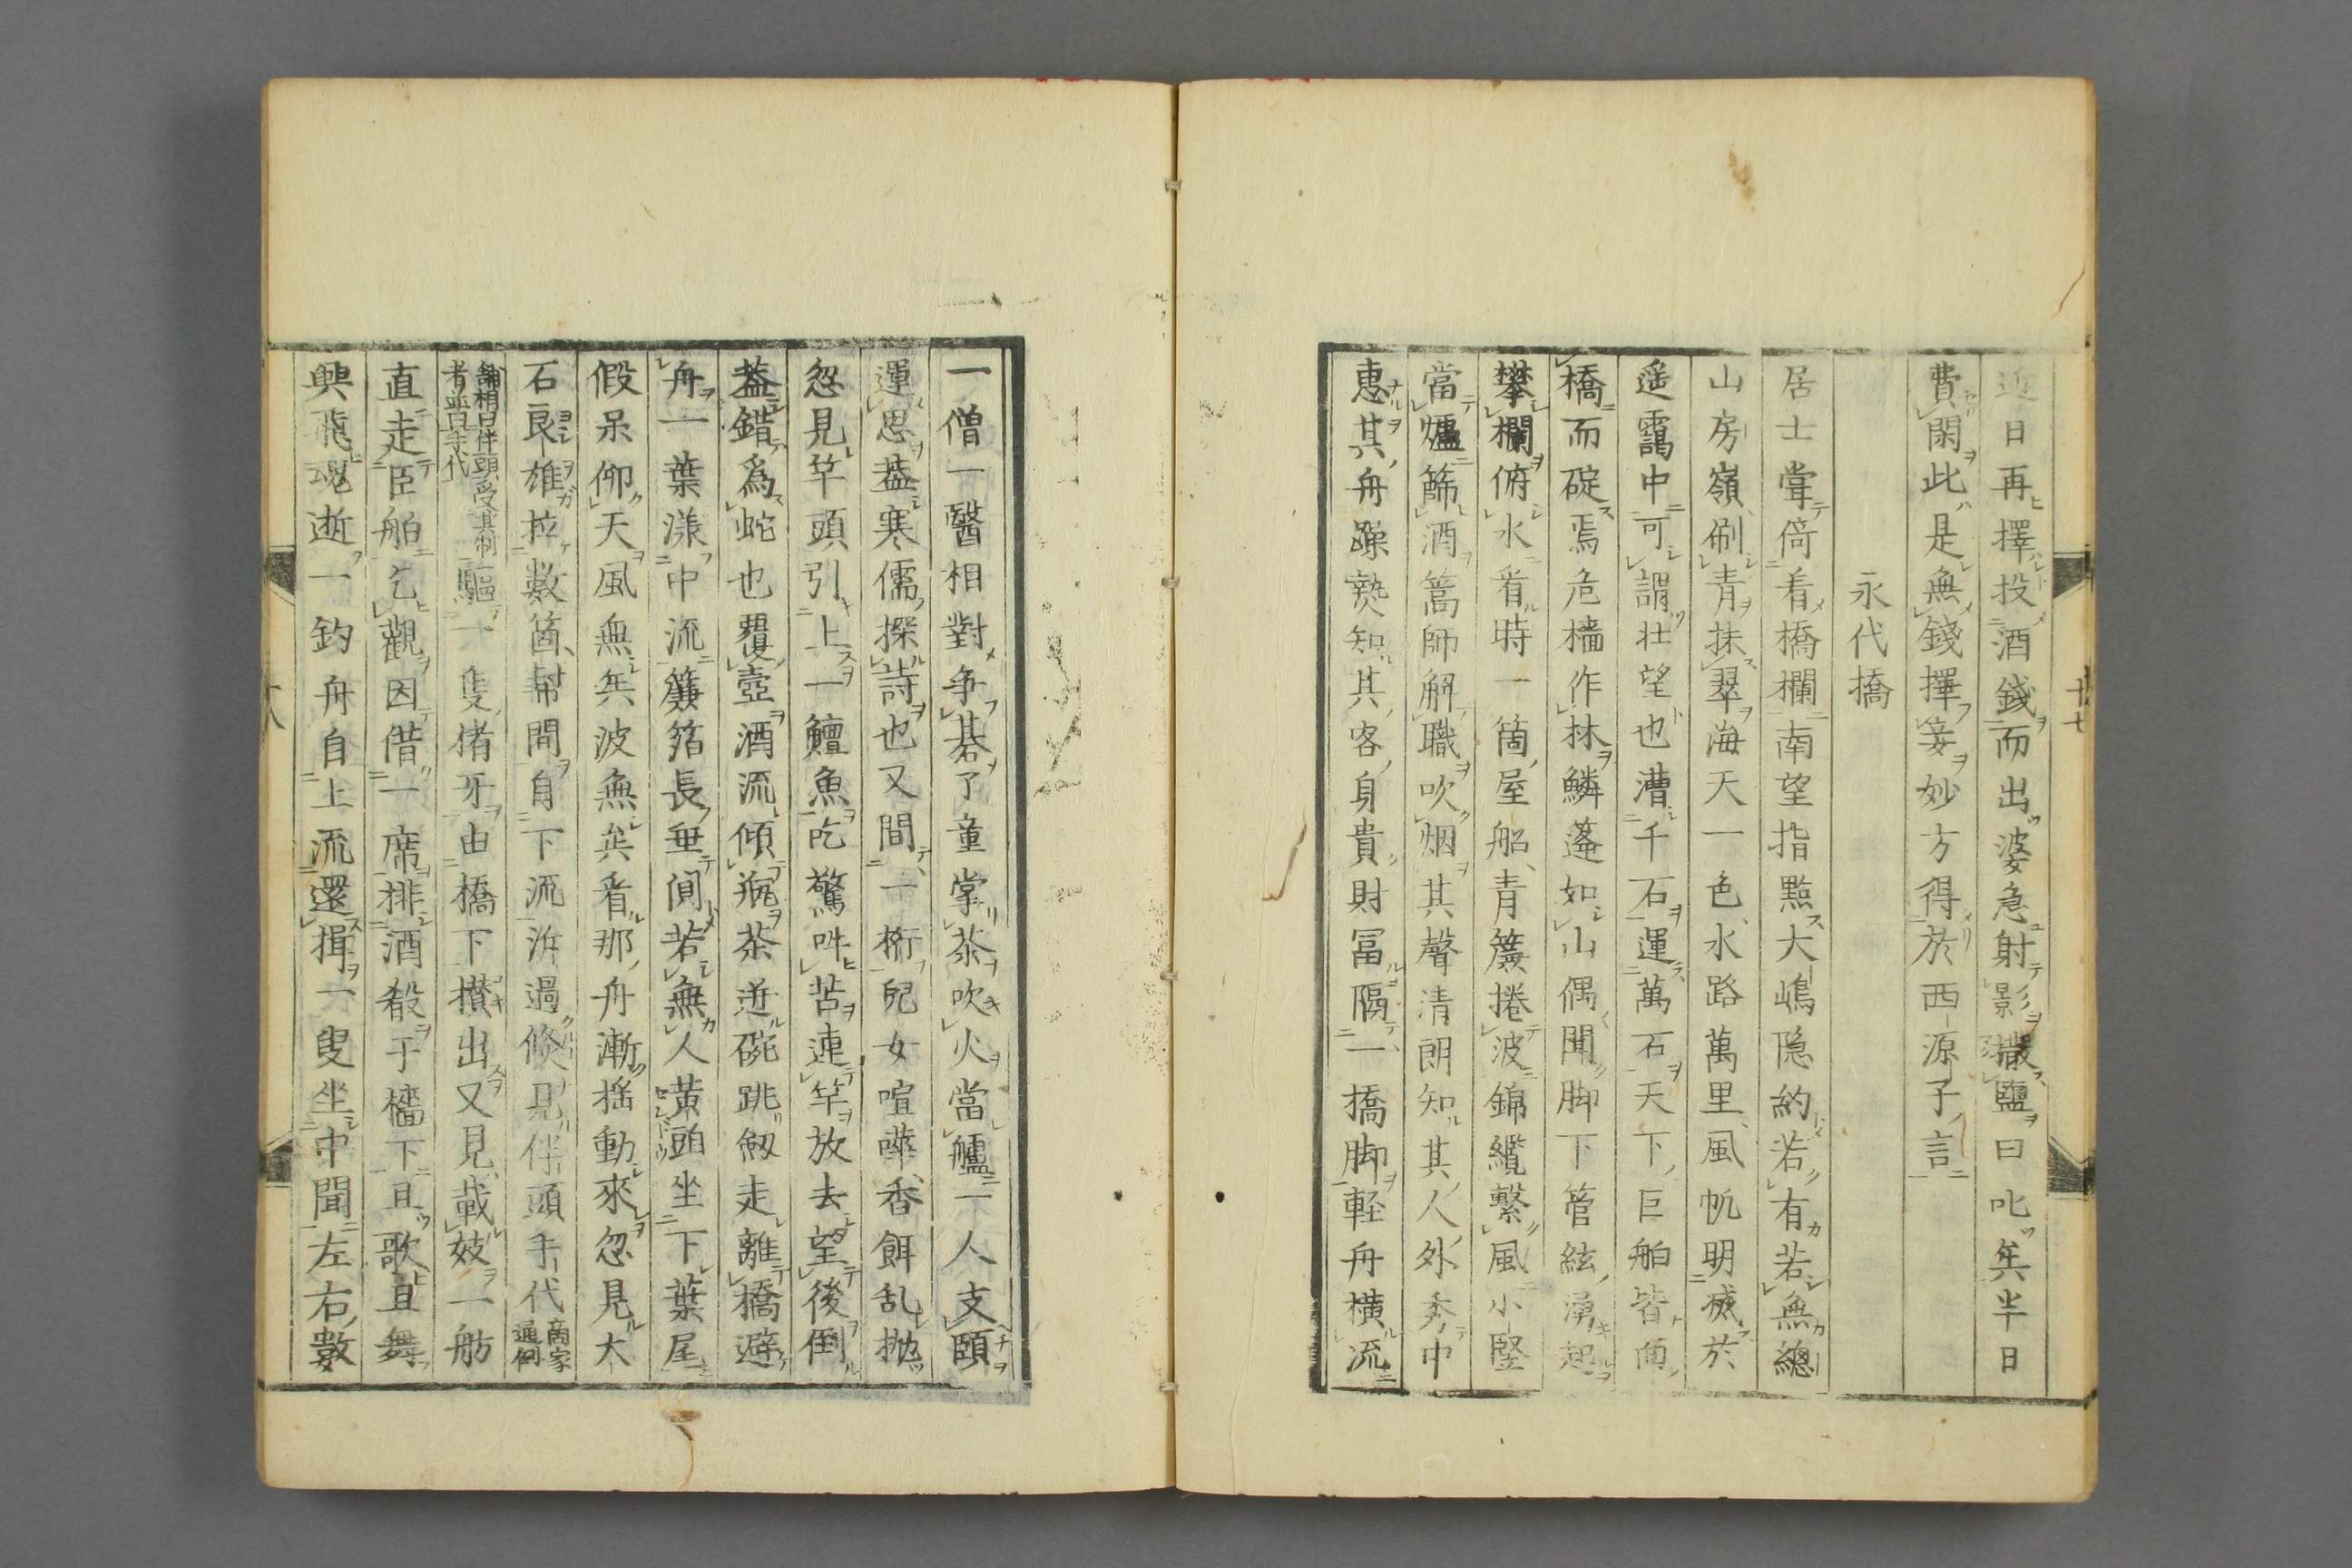 近日再擇投酒錢而出婆急射影撒鹽曰叱矣半日
費閑此是無錢擇妾妙方得於西源子言
永代橋
居士嘗倚看橋欄南望指點大嶋隐約若有若無總
山房嶺刷青抹翠海天一色水路萬里風帆明滅於
遥靄中可謂壮望也漕千石運萬石天下巨舶皆
橋而碇焉危檣作林鱗蓬如山偶聞脚下管絃湧起
攀欄俯水看時一箇屋船青簾捲波錦纜繫風小竪
當爐篩酒篙師解職吹烟其聲清朗知其人外秀中
惠其舟躁熱知其客身貴財冨隔一橋脚軽舟横流
一僧一醫相對争棊了童掌茶吹火當艫一人支頤
運思蓋寒儒探詩也又間一桁兒女喧嘩香餌乱拋
忽見竿頭引上一鱣魚吃驚呌苦連竿放去望後倒
蓋錯為蛇也覆壺酒流傾瓶茶迸碗跳釼走離橋避
舟一葉漾中流簾箔長垂闃若無人黄頭坐下葉尾
假呆仰天風無矣波無矣看那舟漸揺動來忽見大
石良雄拉數箇幇間自下流泝過倐見伴頭手代商家通何
舗相曰伴頭受其制者並曰手代驅一隻猪牙由橋下攅出又見載妓一舫
直走臣舶乞觀因借一席排酒殽于檣下且歌且舞
興飛魂逝一釣舟自上流還揖一叟坐中聞左右數
十七